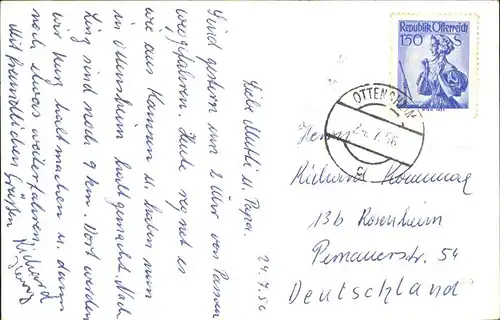 Liebe Mutti u. Papa.
24.7.56
Sind gestern um 2 Uhr von Passau
weggefahren. Heute regnet es
wie aus Kannen u. haben nun
in Ottensheim halt gemacht. Nach
Linz sind noch 9 km. Dort werden
wir kurz halt machen u. dann
noch etwas weiterfahren.
Mit freundlichen Grüßen
Richard
Republik Österreich
150 S
OTTENSHEIM
Herrn
Richard
13b Rosenheim
Pernauerstr. 54
Deutschland